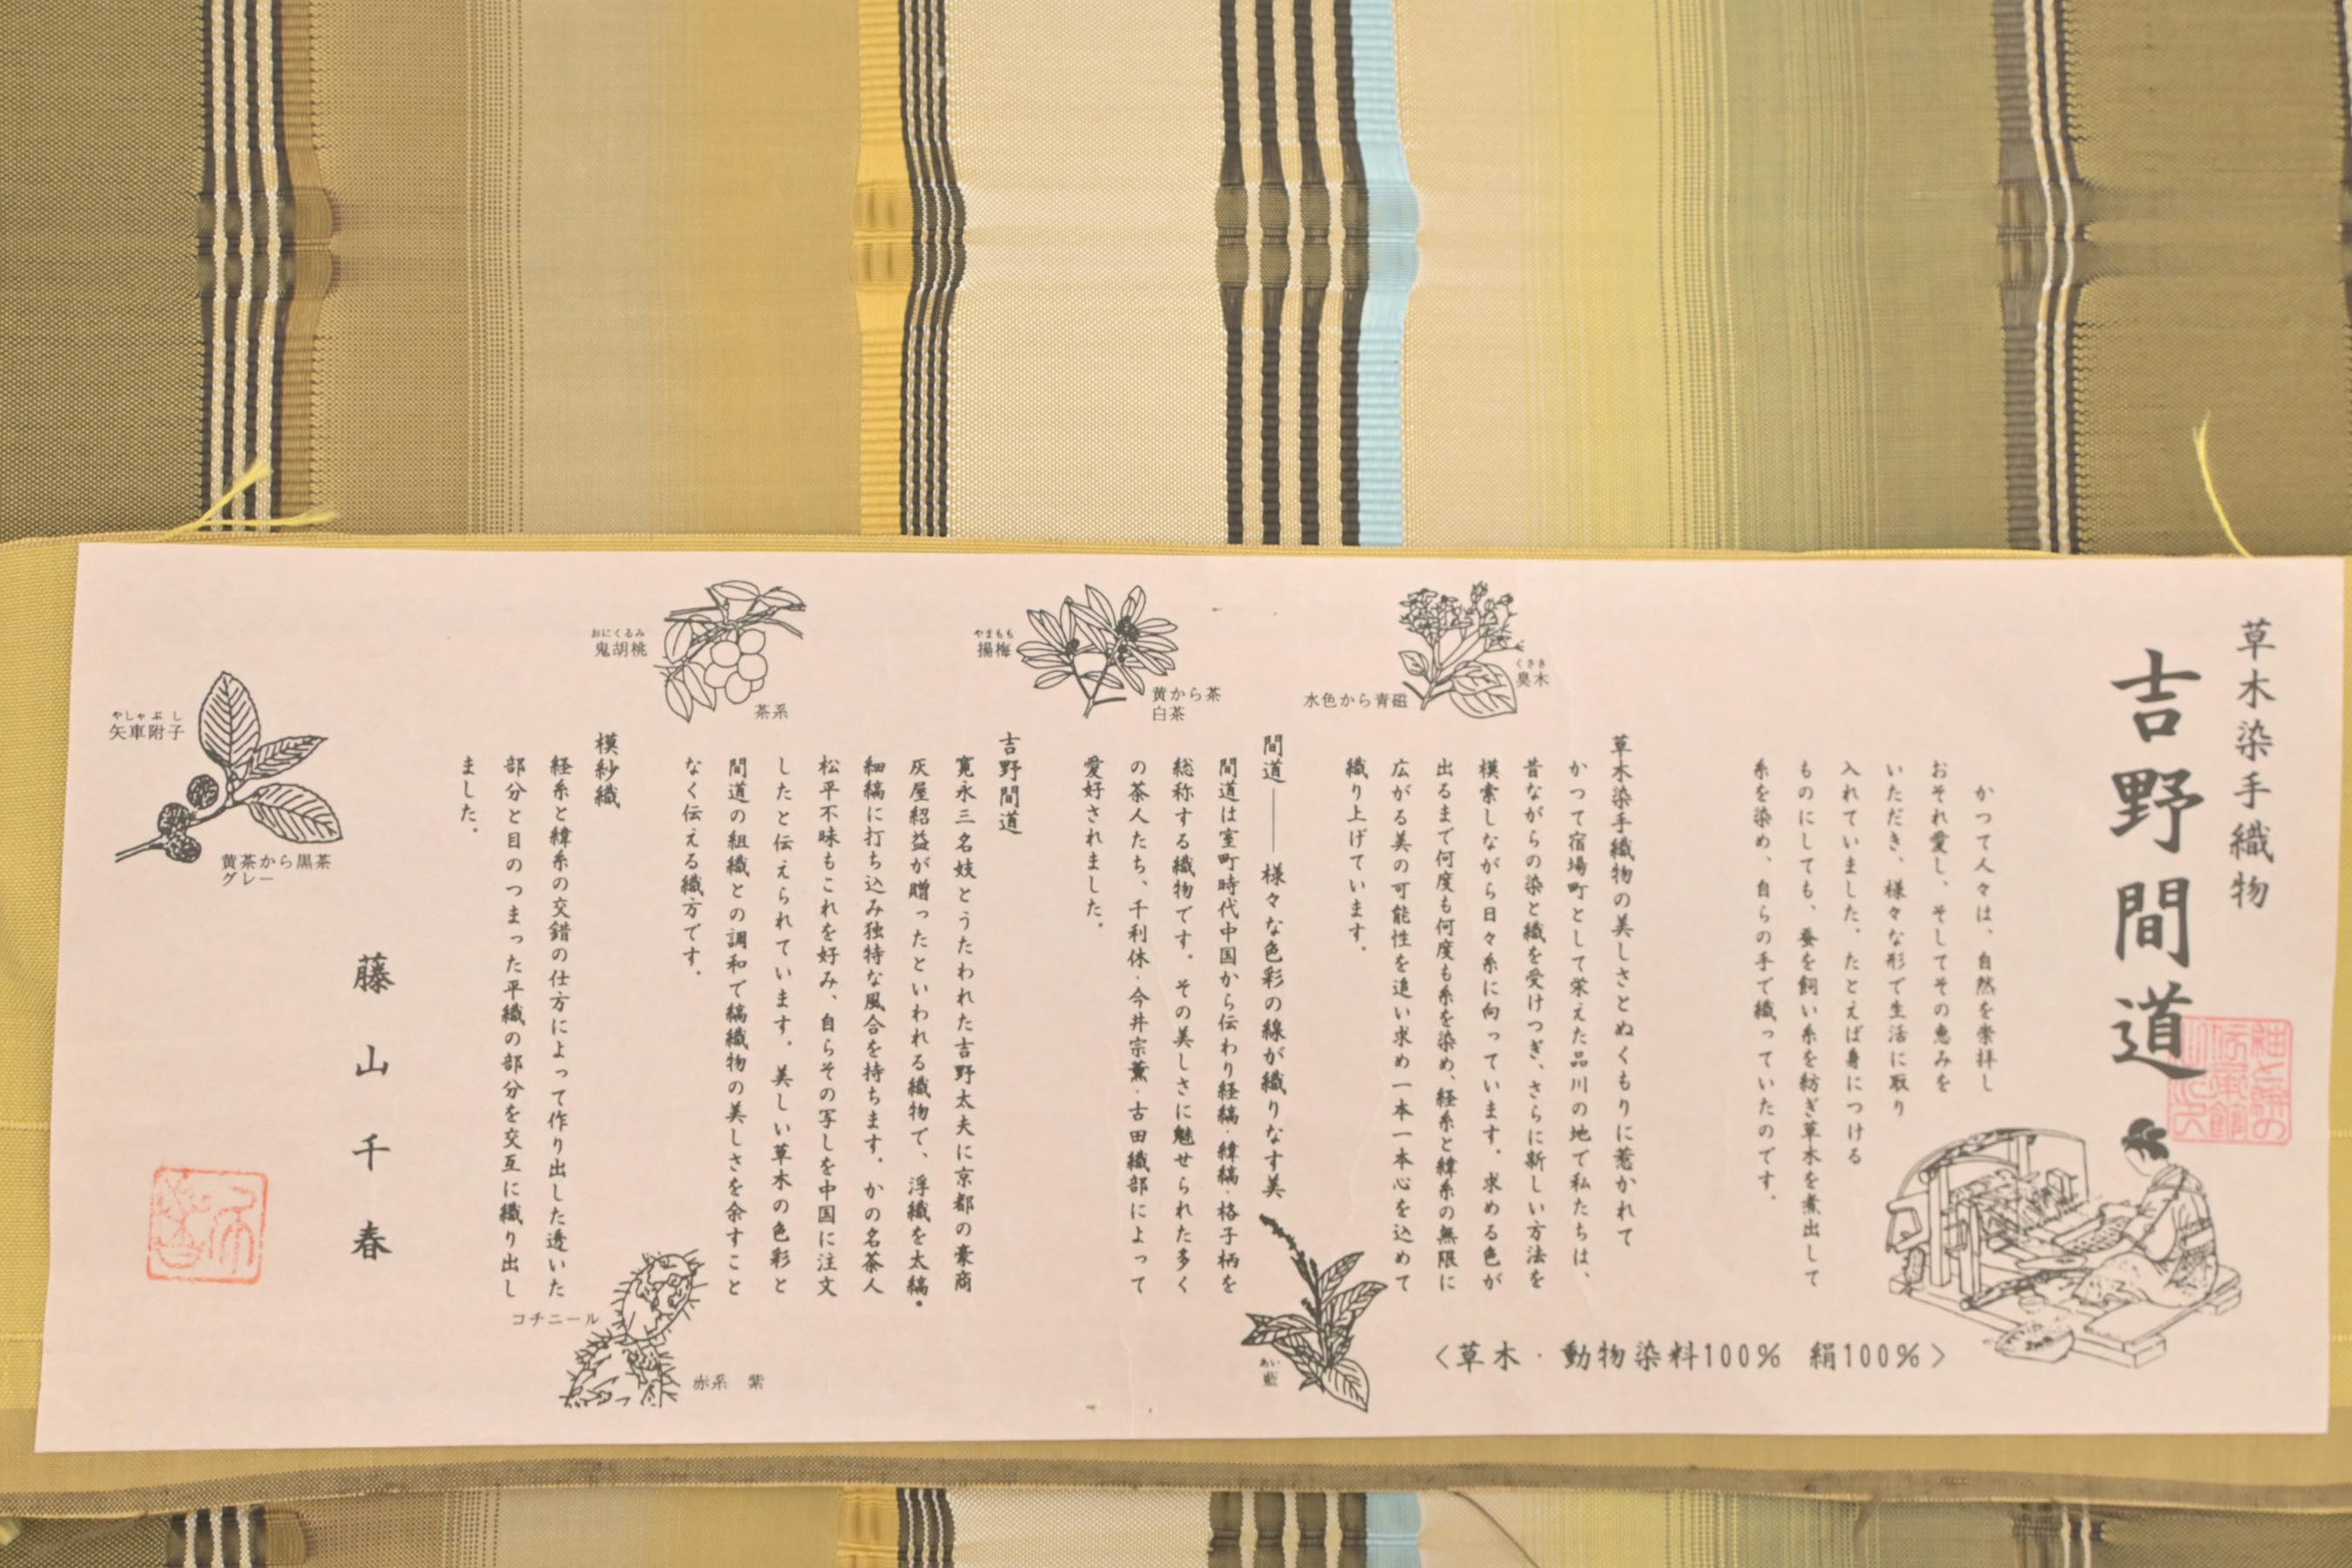 草木染手織物
吉野間道
かつて人々は、自然を崇拝し
おそれ愛し、そしてその恵みを
いただき、様々な形で生活に取り
入れていました。たとえば身につける
ものにしても、蚕を飼い糸を紡ぎ草木を煮出して
糸を染め、自らの手で織っていたのです。
草木染手織物の美しさとぬくもりに惹かれて
かつて宿場町として栄えた品川の地で私たちは、
昔ながらの染と織を受けつぎ、さらに新しい方法を
模索しながら日々糸に向っています。求める色が
出るまで何度も何度も糸を染め、経糸と緯糸の無限に
広がる美の可能性を追い求め一本一本心を込めて
織り上げています。
間道―― 様々な色彩の線が織りなす美
間道は室町時代中国から伝わり経縞・緯縞・格子柄を
総称する織物です。その美しさに魅せられた多く
の茶人たち、千利休・今井宗薫・古田織部によって
愛好されました。
吉野間道
寛永三名妓とうたわれた吉野太夫に京都の豪商
灰屋紹益が贈ったといわれる織物で、浮織を太縞・
細縞に打ち込み独特な風合を持ちます。かの名茶人
松平不昧もこれを好み、自らその写しを中国に注文
したと伝えられています。美しい草木の色彩と
間道の組織との調和で縞織物の美しさを余すこと
なく伝える織方です。
模紗織
経糸と緯糸の交錯の仕方によって作り出した透いた
部分と目のつまった平織の部分を交互に織り出し
ました。
藤山千春
くさき
臭木
水色から青磁
やまもも
揚梅
黄から茶
白茶
おにくるみ
鬼胡桃
茶系
やしゃぶし
矢車附子
黄茶から黒茶
グレー
コチニール
赤系 紫
あい
藍
<草木・動物染料100% 絹100%>